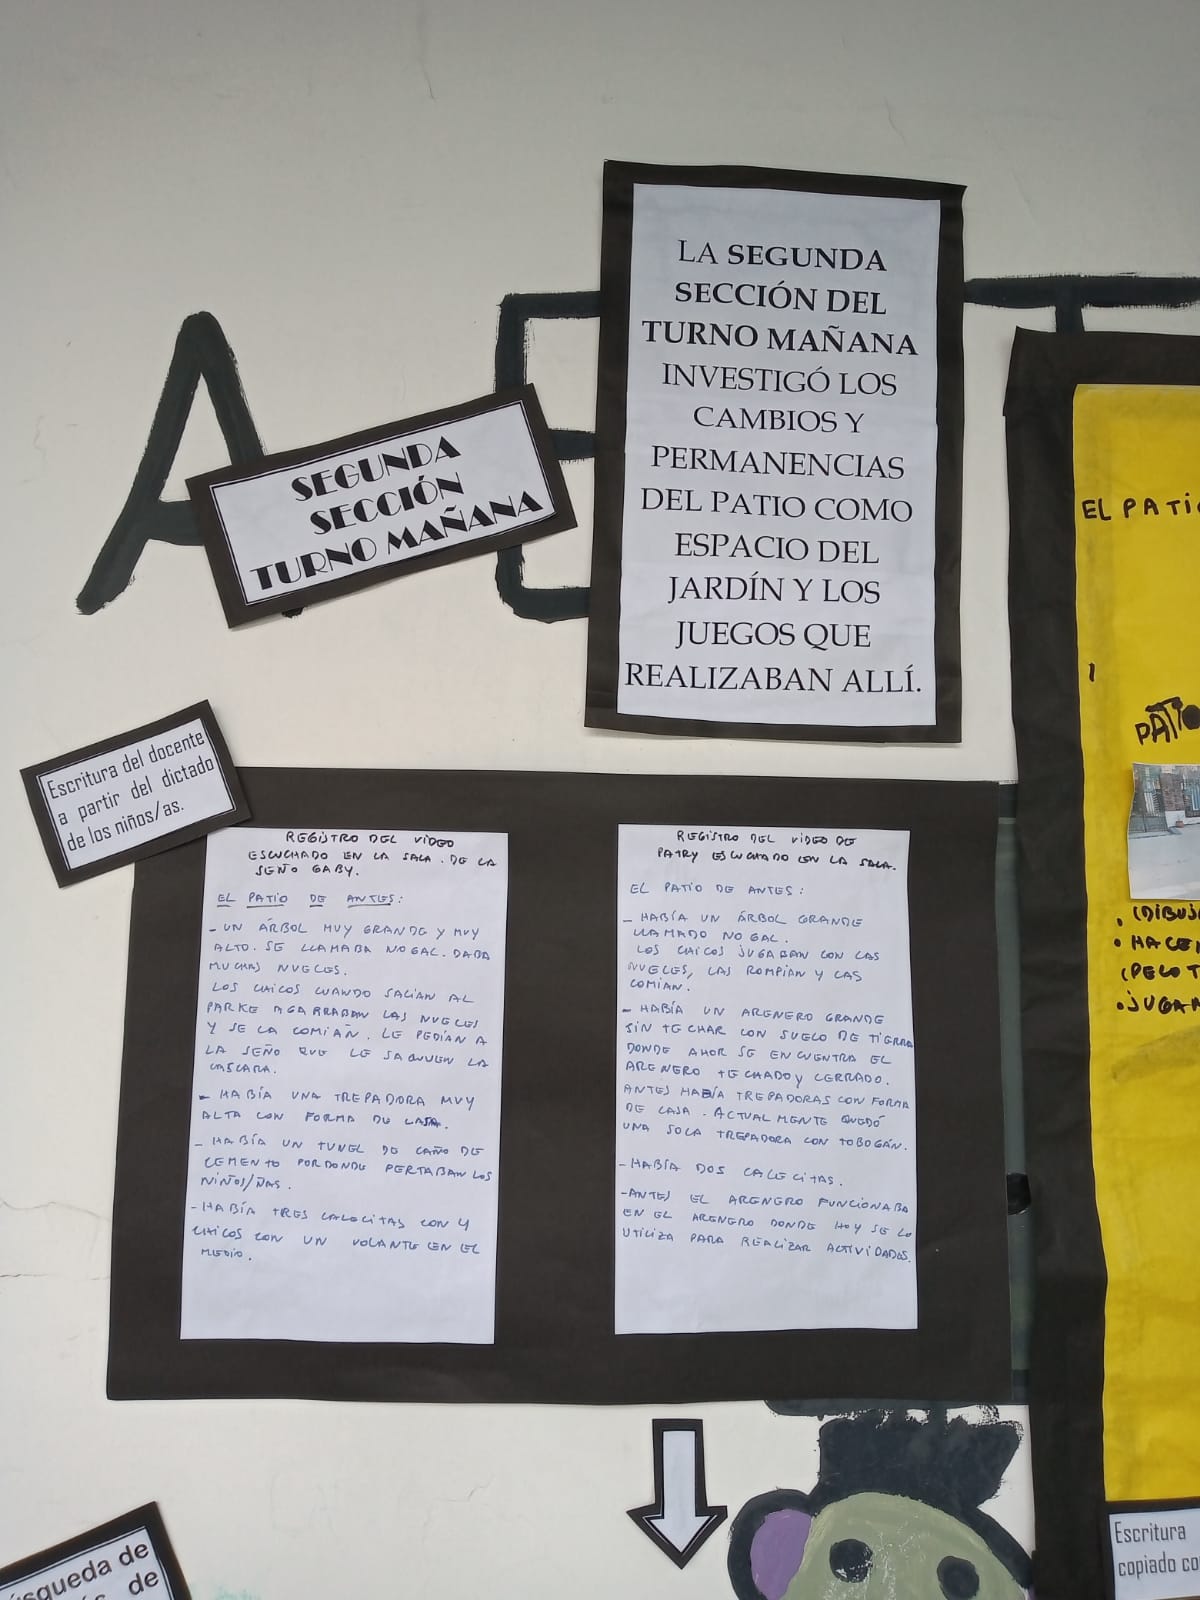 LA SEGUNDA
SECCIÓN DEL
TURNO MAÑANA
INVESTIGÓ LOS
CAMBIOS Y
PERMANENCIAS
DEL PATIO COMO
ESPACIO DEL
JARDÍN Y LOS
JUEGOS QUE
REALIZABAN ALLÍ.
A
SEGUNDA
SECCIÓN
TURNO MAÑANA
Escritura del docente
a partir del dictado
de los niños/as.
REGISTRO DEL VIDEO
ESCUCHADO EN LA SALA. DE LA
SEÑO GABY.
EL PATIO DE ANTES:
- UN ÁRBOL MUY GRANDE Y MUY
ALTO. SE LLAMABA NOGAL. DABA
MUCHAS NUECES.
LOS CHICOS CUANDO SALIAN AL
PARKE AGARRABAN LAS NUECES
Y SE LA COMIAÑ. LE PEDIAN A
LA SEÑO QUE LE SAQUEN LA
CASCARA.
- HABÍA UNA TREPADORA MUY
ALTA CON FORMA DE CASA.
- HABÍA UN TUNEL DE CAÑO DE
CEMENTO POR DONDE PERTABAN LOS
NIÑOS/ÑAS.
- HABÍA TRES CALECITAS CON 4
CHICOS CON UN VOLANTE EN EL
MEDIO.
REGISTRO DEL VIDEO DE
PATRY ESCUCHADO EN LA SALA.
EL PATIO DE ANTES:
- HABÍA UN ÁRBOL GRANDE
LLAMADO NOGAL.
LOS CHICOS JUGABAN CON LAS
NUECES, LAS ROMPIAN Y LAS
COMIAN.
- HABÍA UN ARENERO GRANDE
SIN TECHAR CON SUELO DE TIERRA
DONDE AHOR SE ENCUENTRA EL
ARENERO TECHADO Y CERRADO.
ANTES HABÍA TREPADORAS CON FORMA
DE CASA. ACTUALMENTE QUEDÓ
UNA SOLA TREPADORA CON TOBOGÁN.
- HABÍA DOS CALECITAS.
- ANTES EL ARENERO FUNCIONABA
EN EL ARENERO DONDE HOY SE LO
UTILIZA PARA REALIZAR ACTIVIDADES.
EL PATIO
PATIO
• (DIBUJ
• HACER
(PELOT
• JUGAR
Escritura
copiado co
úsqueda de
de